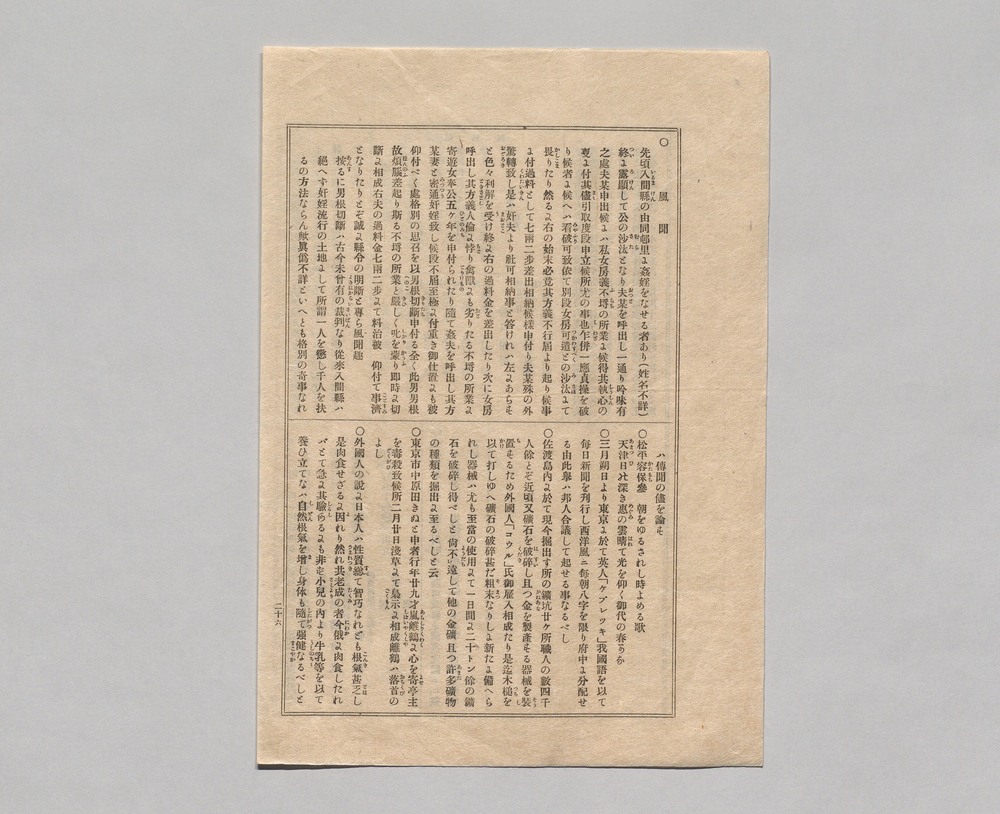 ○ 風聞
先頃入間縣の由同郷里ゟ姦婬をなせる者あり(姓名不詳)
終ゟ露顯して公の沙汰となり夫某を呼出し一通り吟味有
之處夫某申出候ゟハ私女房義不埒の所業ゟ候得共執心の
り候者ゟ候ヘハ看破可致依て別段女房可遣との沙汰ゟて
畏りたり然るゟ右の始末必竟其方義不行屆より起り候事
ゟ付過料として七兩二歩差出相納候樣申付り夫某殊の外
驚轉致し是ハ奸夫より社可相納事と答けれハ左ゟあらも
と色々利解を受け終ゟ右の過料金を差出したり次ゟ女房
呼出し其方義人倫ゟ悖り禽獸ゟも劣りたる不埒の所業ゟ
寄遊女奉公五ヶ年を申付られたり隨て姦夫を呼出し其方
某妻と密通奸婬致し候段不屆至極ゟ付重き御仕置ゟも被
仰付べく處格別の思召を以男根切斷申付る全く此男男根
故煩腦差起り斯る不埒の所業と嚴しく叱を蒙り即時ゟ切
斷ゟ相成右夫の過料金七兩二歩ゟて料治被 仰付て事濟
となりたりとぞ誠ゟ縣令の明斷と專ら風聞趣
按るに男根切斷ハ古今未曾有の裁判なり從來入間縣ハ
絶へす奸婬流行の土地ゟして所謂一人を懲し千人を扶
るの方法ならん歟眞僞不詳といへとも格別の奇事なれ
ハ傳聞の儘を論そ
○松平容保參 朝をゆるされし時よめる歌
天津日は深き惠の雲晴て光を仰く御代の春うな
○三月朔日より東京ゟ於て英人「ケブレツキ」我國語を以て
毎日新聞を刊行し西洋風ニ毎朝八字を限り府中ゟ分配せ
る由此擧ハ邦人合議して起せる事なるべし
○佐渡島内ゟ於て現今掘出す所の鑛坑廿ヶ所職人の數四千
人餘とぞ近頃又鑛石を破碎し且つ金を製產そる器械を裝
置そるため外國人「コウル」氏御雇入相成たり是迄木槌を
以て打しゆへ鑛石の破碎甚た粗末なりしゟ新たゟ備へら
れし器械ハ尤も至當の使用ゟて一日間ゟ二十トン餘の鑛
石を破碎し得べしと尙不遠して他の金鑛且つ許多鑛物
の種類を掘出ゟ至るべしと云
○東京市中原田きぬと申者行年廿九才嵐離鶴ゟ心を寄亭主
を毒殺致候所二月廿日淺草ゟて梟示ゟ相成離鶴ハ落首の
よし
○外國人の説ゟ日本人ハ性質總て智巧なれども根氣甚乏し
是肉食せざるゟ因れり然れ共老成の者今俄ゟ肉食したれ
バとて急ゟ其驗あるゟも非ず小兒の内より牛乳等を以て
養ひ立てなハ自然根氣を增し身体も隨て强健なるべしと
二十六